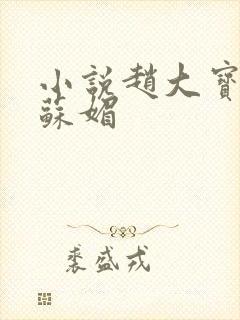 小説趙大寶
蘇媚
裘盛戎